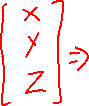 [X
Y
Z] ⇒